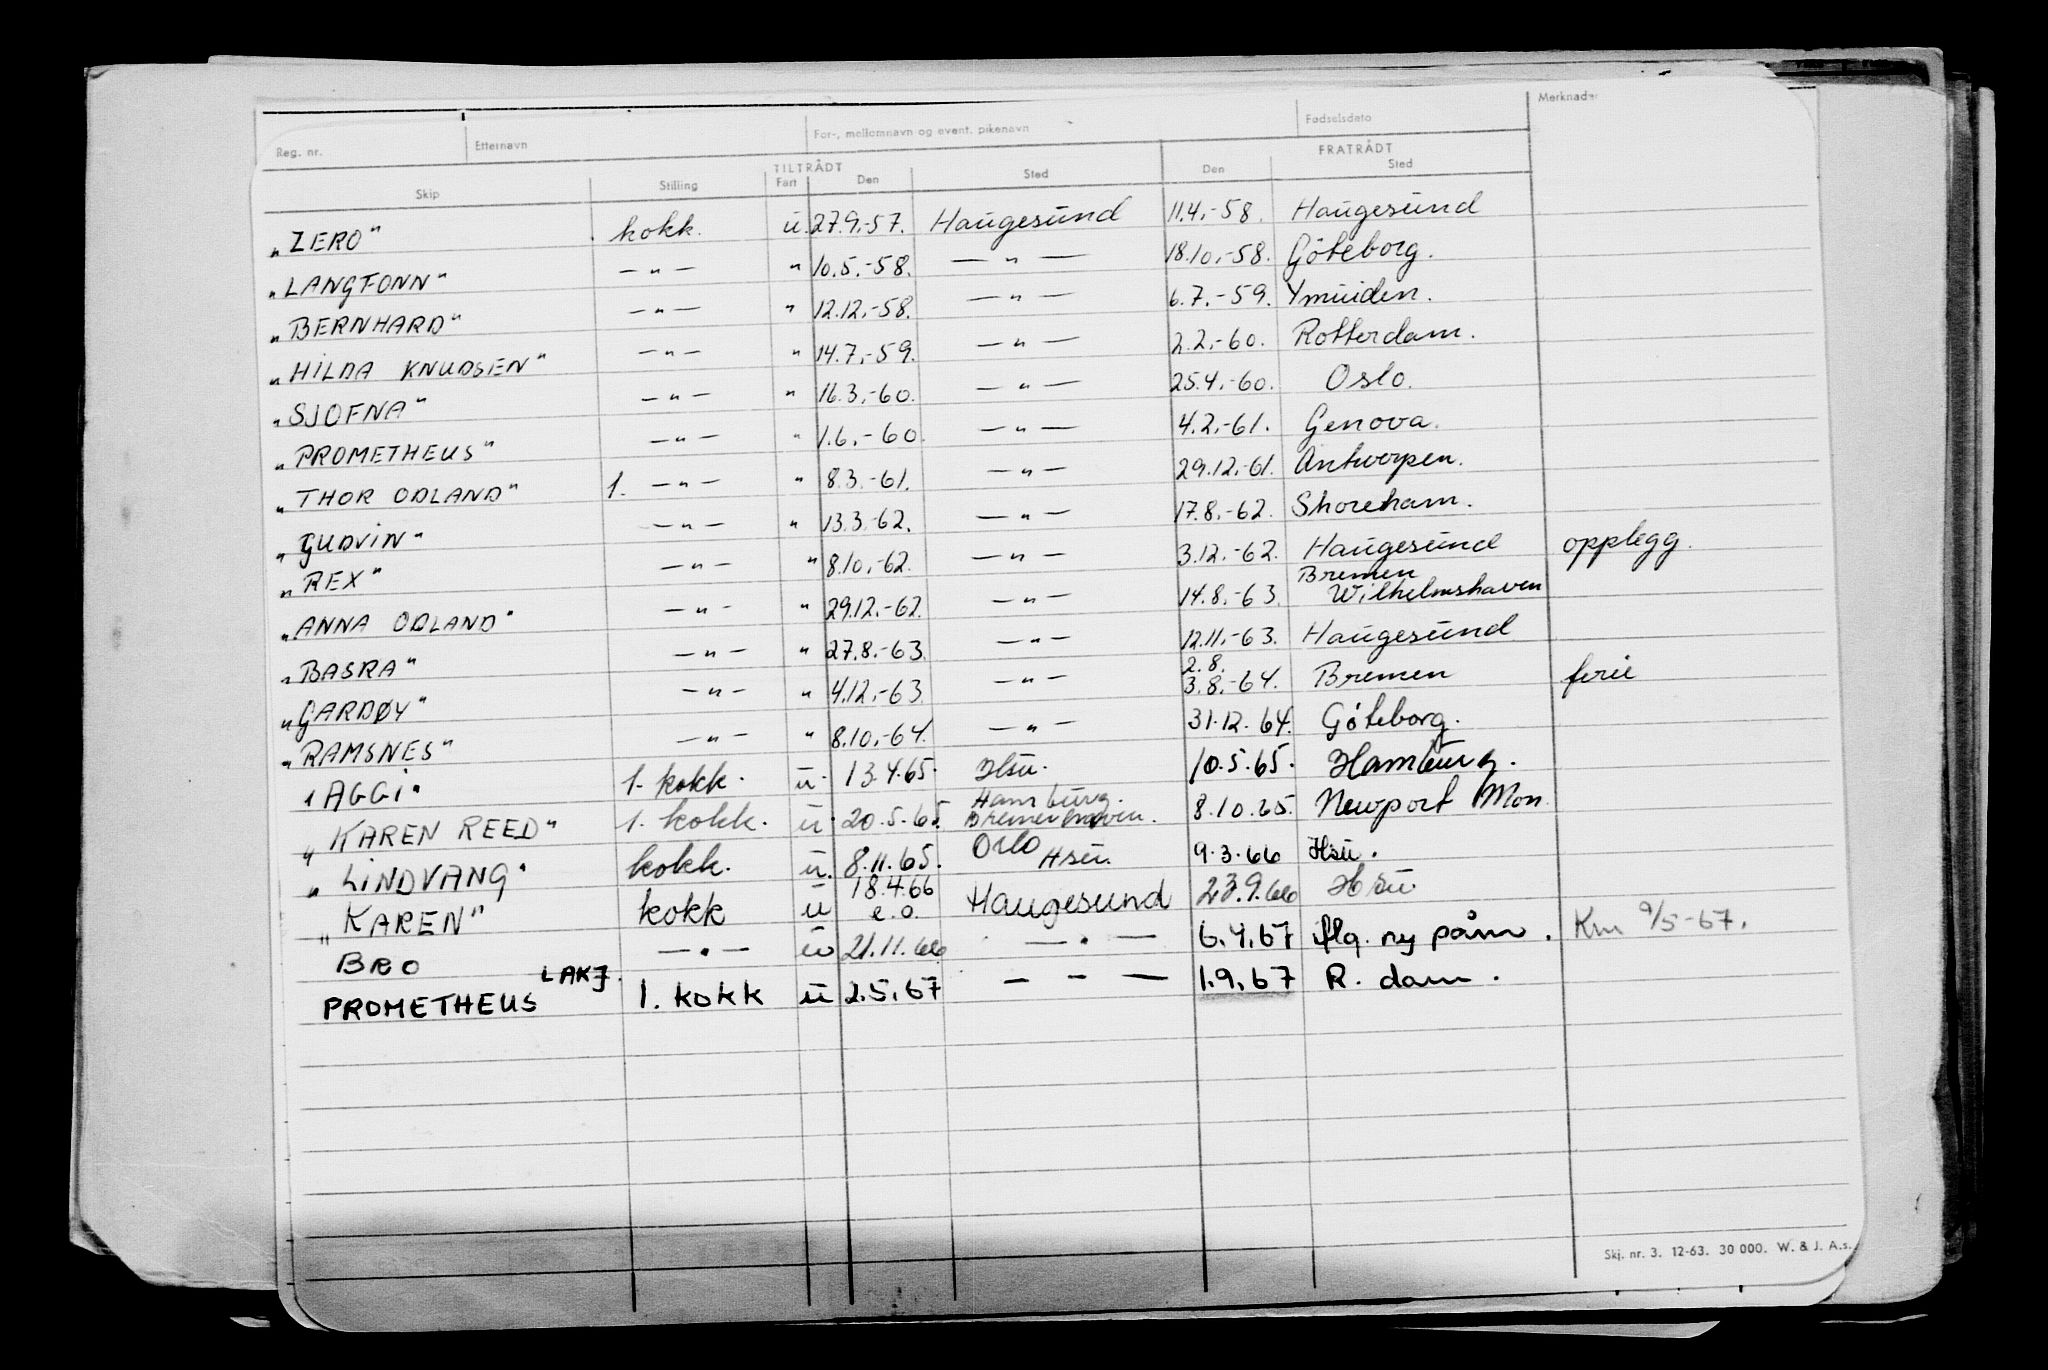 Reg. nr. Etternavn For-, mellomnavn og event. pikenavn Fødselsdato Merknader
TILTRÅDT FRATRÅDT
Skip Stilling Fart Den Sted Den Sted
„ZERO" kokk. u. 27.9.-57. Haugesund 11.4.-58. Haugesund
„LANGFONN" — " — " 10.5.-58. — " — 18.10.-58. Göteborg.
„BERNHARD" — " — " 12.12.-58. — " — 6.7.-59. Ymuiden.
„HILDA KNUDSEN" — " — " 14.7.-59. — " — 2.2.-60. Rotterdam.
„SJOFNA" — " — " 16.3.-60. — " — 25.4.-60. Oslo.
„PROMETHEUS" — " — " 1.6.-60. — " — 4.2.-61. Genova.
„THOR ODLAND" 1. — " — " 8.3.-61. — " — 29.12.-61. Antwerpen.
„GUDVIN" — " — " 13.3.-62. — " — 17.8.-62. Shoreham.
„REX" — " — " 8.10.-62. — " — 3.12.-62. Haugesund opplegg.
Bremen
„ANNA ODLAND" — " — " 29.12.-62. — " — 14.8.-63. Wilhelmshaven
„BASRA" — " — " 27.8.-63. — " — 12.11.-63. Haugesund
2.8.
„GARDØY" — " — " 4.12.-63 — " — 3.8.-64. Bremen ferie
„RAMSNES" — " — " 8.10.-64. — " — 31.12.64. Göteborg.
"AGGI" 1. kokk. u. 13.4.65. Hsu. 10.5.65. Hamburg.
Hamburg.
„KAREN REED" 1. kokk. u. 20.5.65. Bremerhaven. 8.10.65. Newport Mon
„LINDVANG" kokk. u. 8.11.65. Oslo Hsu. 9.3.66 Hsu.
18.4.66
„KAREN" kokk u e.o. Haugesund 23.9.66 Hsu
BRO — " — u 21.11.66 — " — 6.4.67 flg. ny påm. Km 9/5-67.
LAKJ.
PROMETHEUS 1. kokk u 2.5.67 — - — 1.9.67 R.dam.
Skj. nr. 3. 12-63. 30 000. W. & J. A.s.